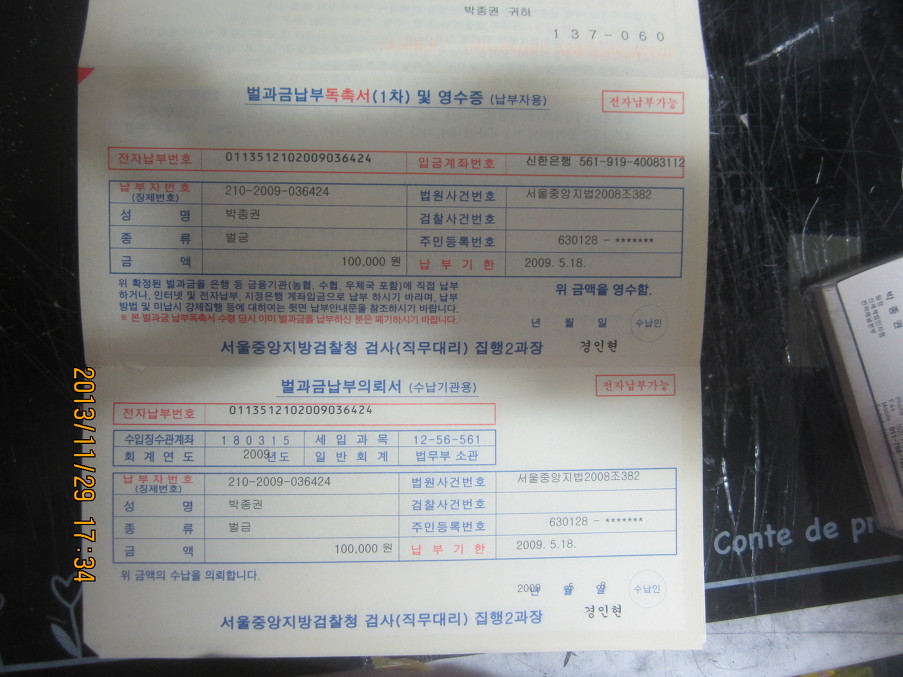 박종권 귀하
137-060
벌과금납부독촉서(1차) 및 영수증 (납부자용)
전자납부가능
전자납부번호 0113512102009036424 입금계좌번호 신한은행 561-919-40083112
납부자번호 (징제번호) 210-2009-036424 법원사건번호 서울중앙지법2008조382
성 명 박종권 검찰사건번호
종 류 벌금 주민등록번호 630128 - *******
금 액 100,000 원 납부기한 2009. 5.18.
위 확정된 벌과금을 은행 등 금융기관(농협, 수협, 우체국 포함)에 직접 납부
하거나, 인터넷 및 전자납부, 지정은행 계좌입금으로 납부 하시기 바라며, 납부
방법 및 미납시 강제집행 등에 대하여는 뒷면 납부안내문을 참조하시기 바랍니다.
※ 본 벌과금 납부독촉서 수령 당시 이미 벌과금을 납부하신 분은 폐기하시기 바랍니다.
위 금액을 영수함.
년 월 일 수납인
서울중앙지방검찰청 검사(직무대리) 집행2과장 경인현
벌과금납부의뢰서 (수납기관용)
전자납부가능
전자납부번호 0113512102009036424
수입징수관계좌 180315 세입과목 12-56-561
회계연도 2009년도 일반회계 법무부 소관
납부자번호 (징제번호) 210-2009-036424 법원사건번호 서울중앙지법2008조382
성 명 박종권 검찰사건번호
종 류 벌금 주민등록번호 630128 - *******
금 액 100,000 원 납부기한 2009. 5.18.
위 금액의 수납을 의뢰합니다.
2009 년 월 일 수납인
서울중앙지방검찰청 검사(직무대리) 집행2과장 경인현
2013/11/29 17:34
박 종 권
Conte de pr